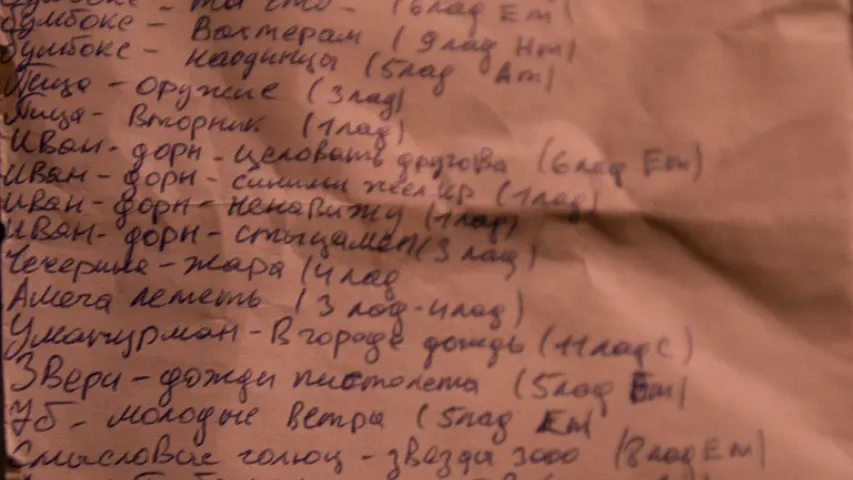 Бумбокс - Та что - (6лад Em)
Бумбокс - Вахтерам (9лад Hm)
Бумбокс - наодинцы (5лад Am)
Пица - оружие (3лад)
Пица - Вторник (1лад)
Иван - дорн - целовать другова (6лад Em)
Иван - дорн - синими (1лад)
Иван - дорн - ненавижу (1лад)
Иван - дорн - стыцамен (3лад)
Чечерина - жара (4лад
Амега лететь (3лад-4лад)
Уматурман - В городе дождь (11лад C)
Звери - дожди пистолета (5лад Em)
7б - молодые ветра (5лад Em)
Смысловые голюц - звазды 3000 (8лад Em)